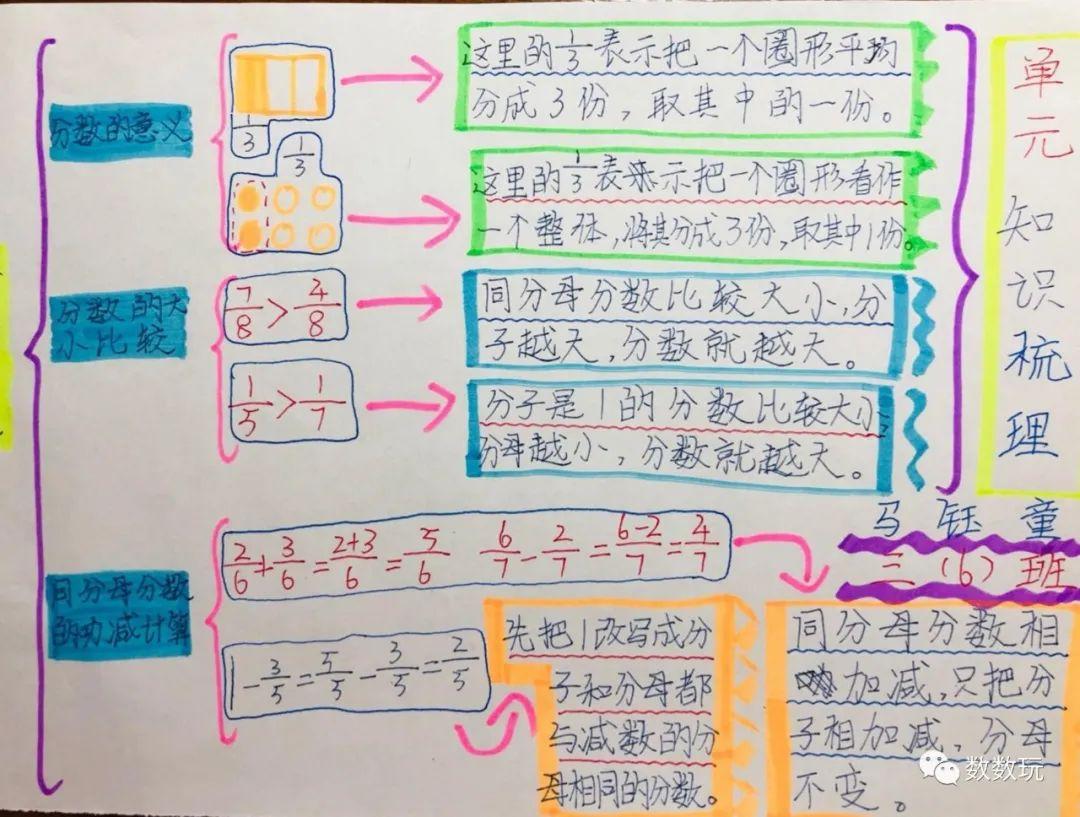 单元知识梳理
马钰童
三（6）班
分数的意义
1/3
这里的1/3表示把一个圈形平均
分成3份，取其中的一份。
1/3
这里的1/3表示把一个圈形看作
一个整体，将其分成3份，取其中1份。
分数的大
小比较
7/8>4/8
同分母分数比较大小，分
子越大，分数就越大。
1/5>1/7
分子是1的分数比较大小
分母越小，分数就越大。
同分母分数
的加减计算
2/6+3/6=2+3/6=5/6 6/7-2/7=6-2/7=4/7
同分母分数相
加减，只把分
子相加减，分母
不变。
1-3/5=5/5-3/5=2/5
先把1改写成分
子和分母都
与减数的分
母相同的分数。
数数玩